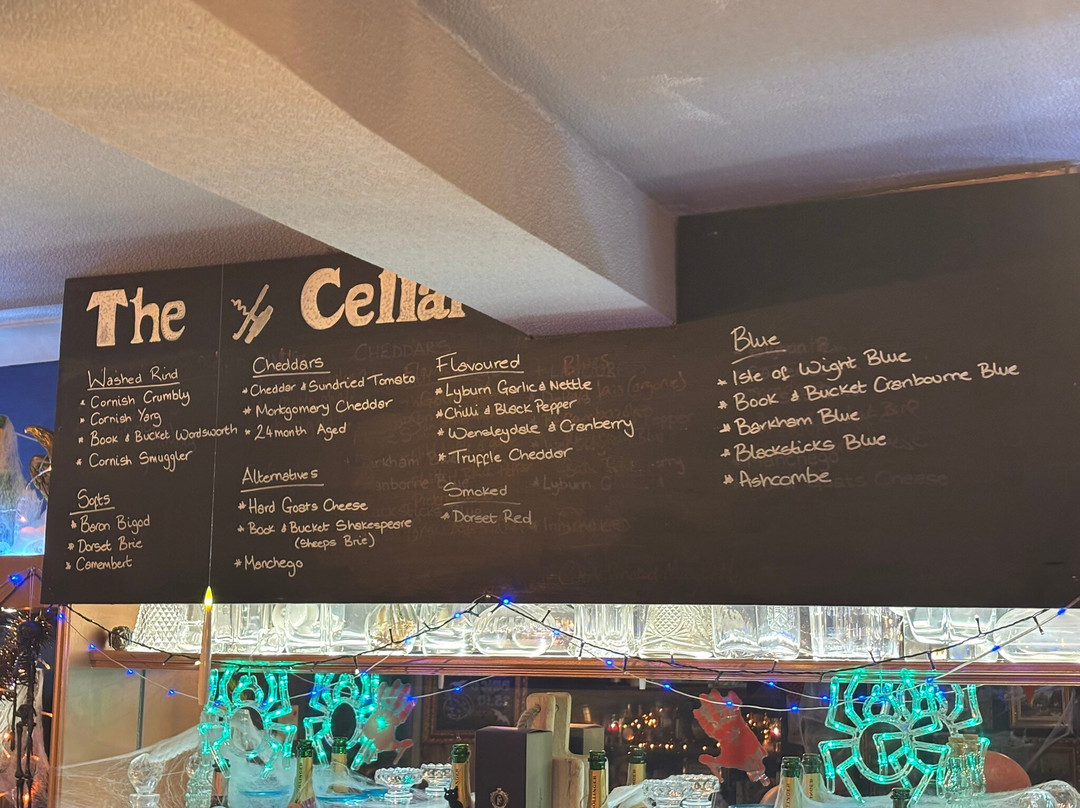 The Cellar
Washed Rind
* Cornish Crumbly
* Cornish Yarg
* Book & Bucket Wordsworth
* Cornish Smuggler
Softs
* Baron Bigod
* Dorset Brie
* Camembert
Cheddars
* Cheddar & Sundried Tomato
* Montgomery Cheddar
* 24 month Aged
Alternatives
* Hard Goats Cheese
* Book & Bucket Shakespeare
(Sheeps Brie)
* Manchego
Flavoured
* Lyburn Garlic & Nettle
* Chilli & Black Pepper
* Wensleydale & Cranberry
* Truffle Cheddar
Smoked
* Dorset Red
Blue
* Isle of Wight Blue
* Book & Bucket Cranbourne Blue
* Barkham Blue
* Blacksticks Blue
* Ashcombe